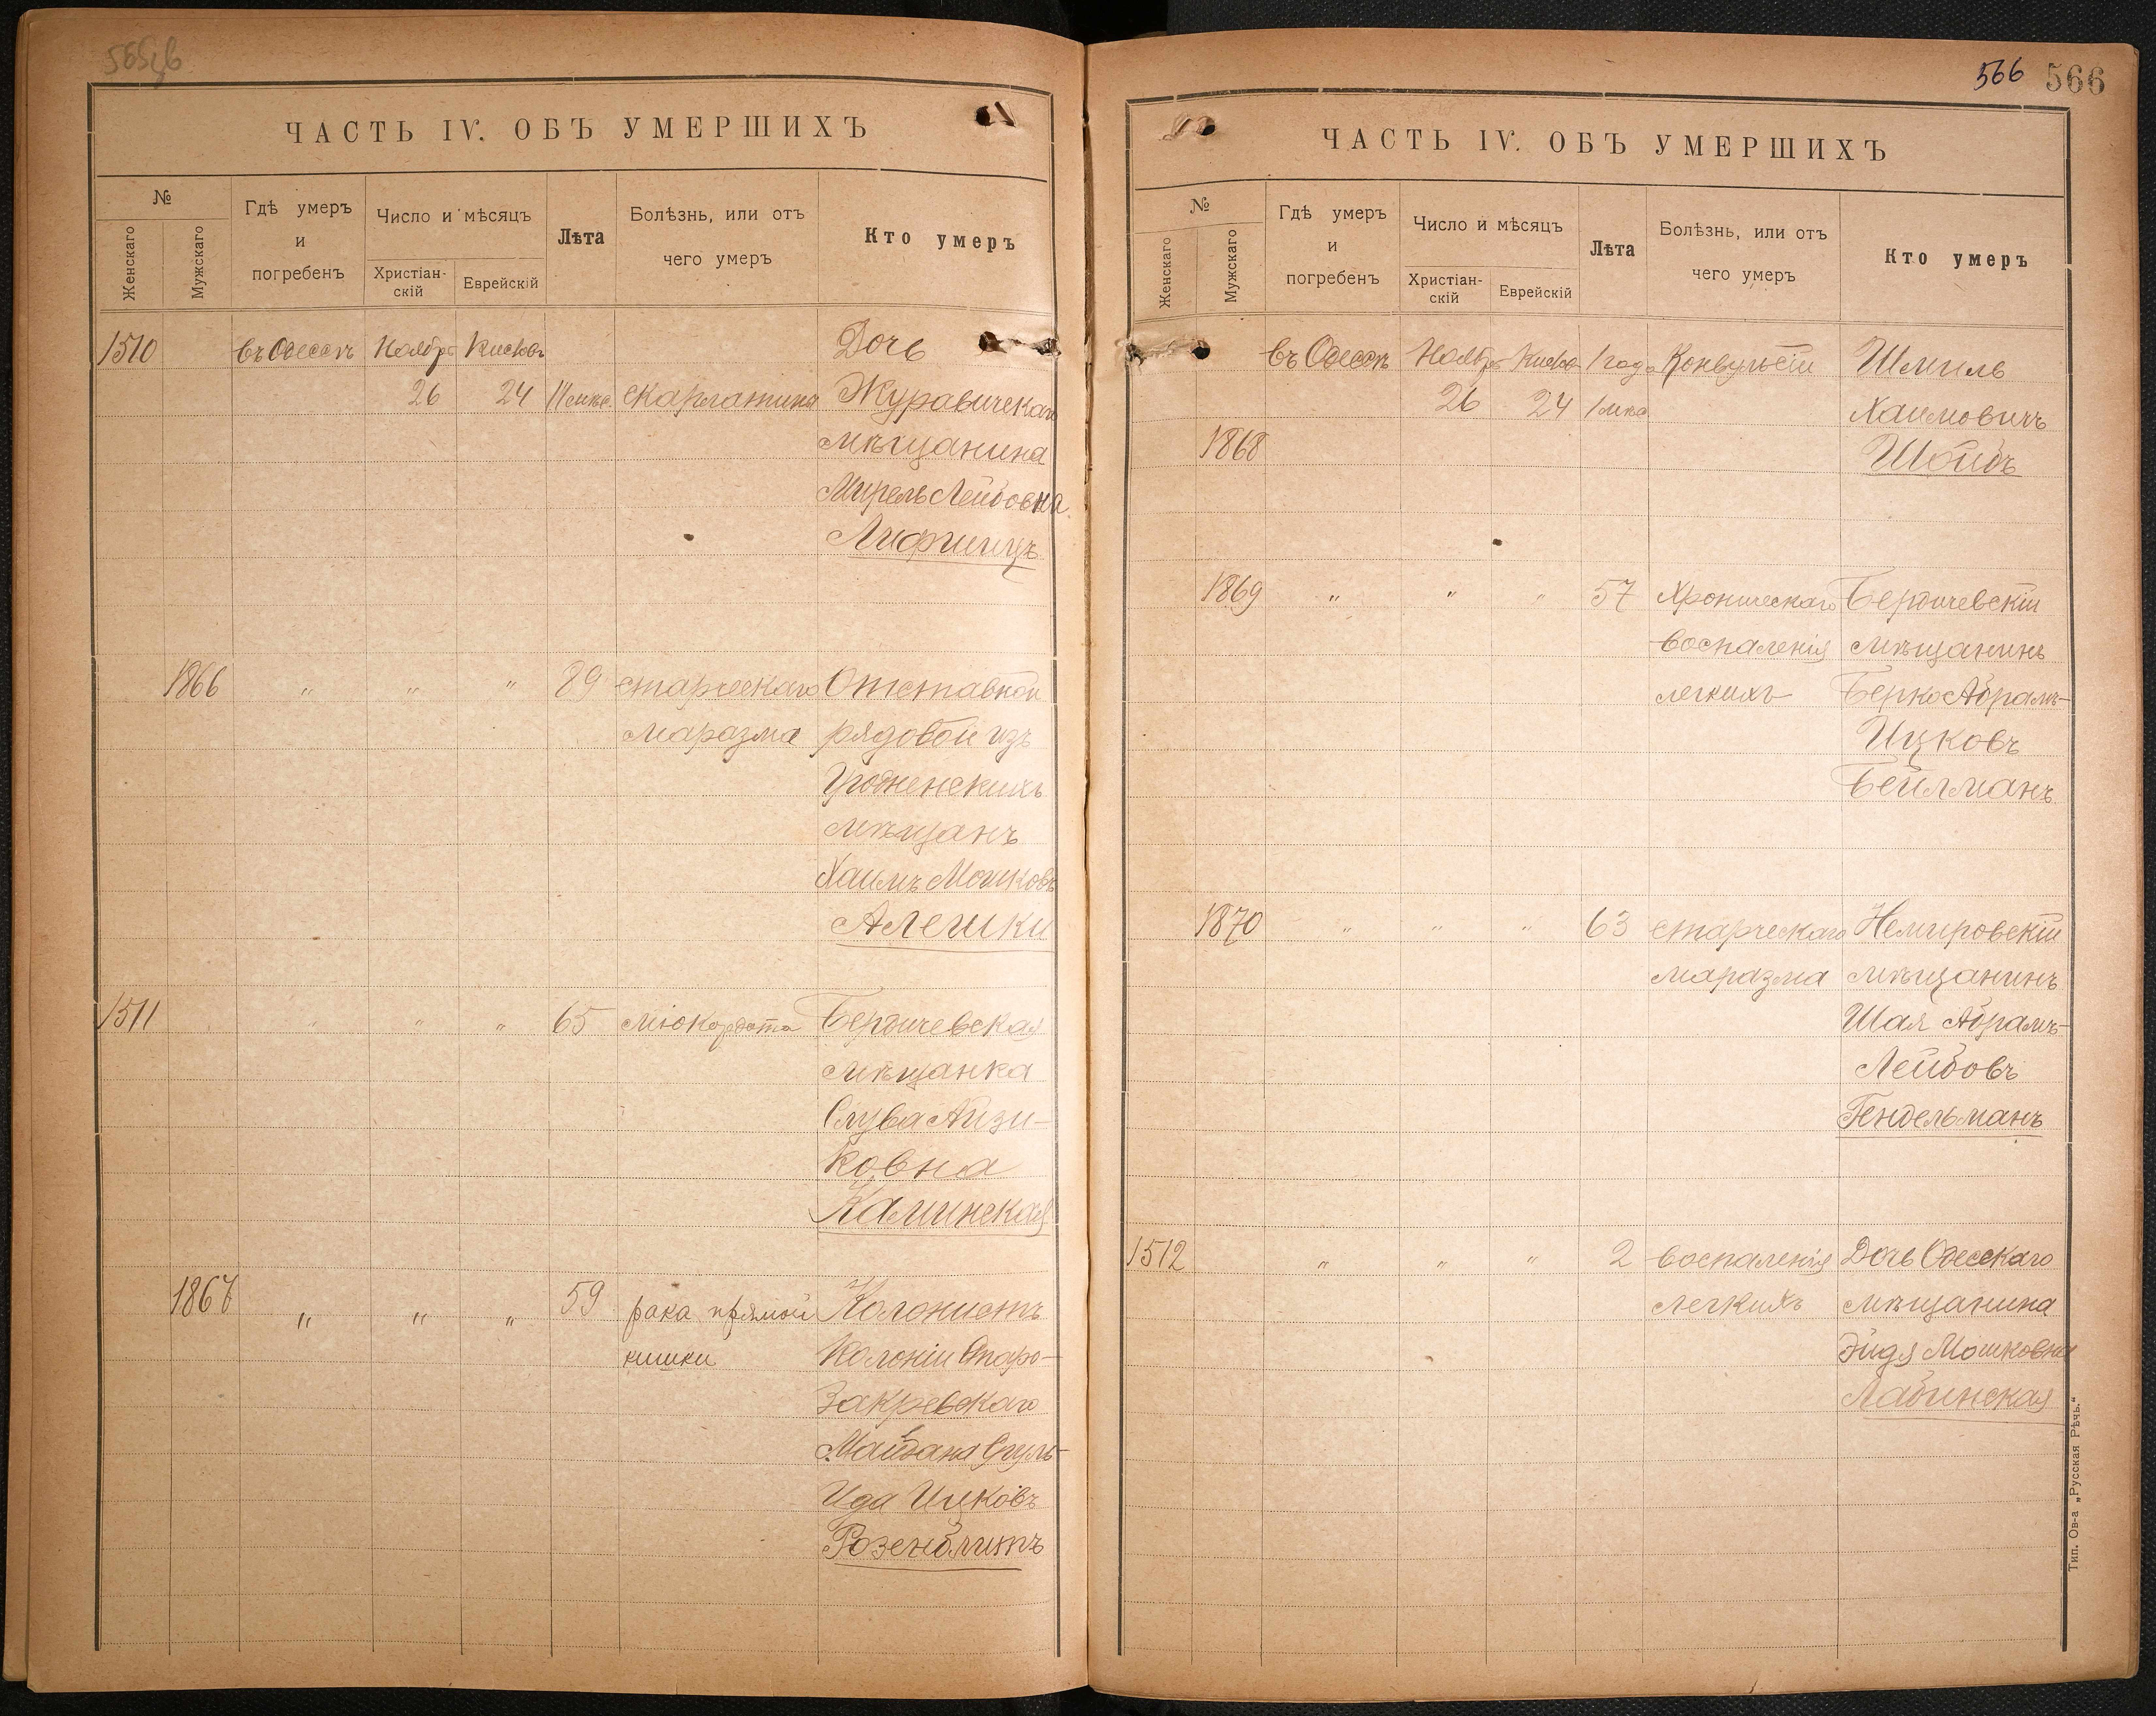 ЧАСТЬ IV. ОБЪ УМЕРШИХЪ
№
Женскаго
Мужскаго
Гдѣ умеръ
и
погребенъ
Число и мѣсяцъ
Христіан-
скій
Еврейскій
Лѣта
Болѣзнь, или отъ
чего умеръ
Кто умеръ
1510 въ Одессѣ Ноябрь Кислевъ Дочь
26 24 11 мѣс. скарлатина Журавичскаго
мѣщанина
Мирель Лейбовна
Лифшицъ
1866 " " " 89 старческаго Отставной
маразма рядовой изъ
Гродненскихъ
мѣщанъ
Хаимъ Мошковъ
Алешки
1511 " " " 65 міокардита Бердичевская
мѣщанка
Слува Айзи-
ковна
Калинская
1867 " " " 59 рака прямой Колонистъ
кишки Колоніи Старо-
Закревскаго
Майдана Сруль-
Ида Ицковъ
Розенблитъ
566 566
ЧАСТЬ IV. ОБЪ УМЕРШИХЪ
№
Женскаго
Мужскаго
Гдѣ умеръ
и
погребенъ
Число и мѣсяцъ
Христіан-
скій
Еврейскій
Лѣта
Болѣзнь, или отъ
чего умеръ
Кто умеръ
въ Одессѣ Ноябрь Кислевъ 1 года Конвульсіи Шмиль
26 24 1 мѣс Хаимовичъ
1868 Шойбъ
1869 " " " 57 Хроническаго Бердичевскій
воспаленія мѣщанинъ
легкихъ Берко Абрамъ-
Ицковъ
Бейлманъ
1870 " " " 63 старческаго Немировскій
маразма мѣщанинъ
Шая Абрамъ-
Лейбовъ
Гендельманъ
1512 " " " 2 воспаленія Дочь Одесскаго
легкихъ мѣщанина
Эйдя Мошковна
Лабинская
Тип. Ов-а „Русская Рѣчь."